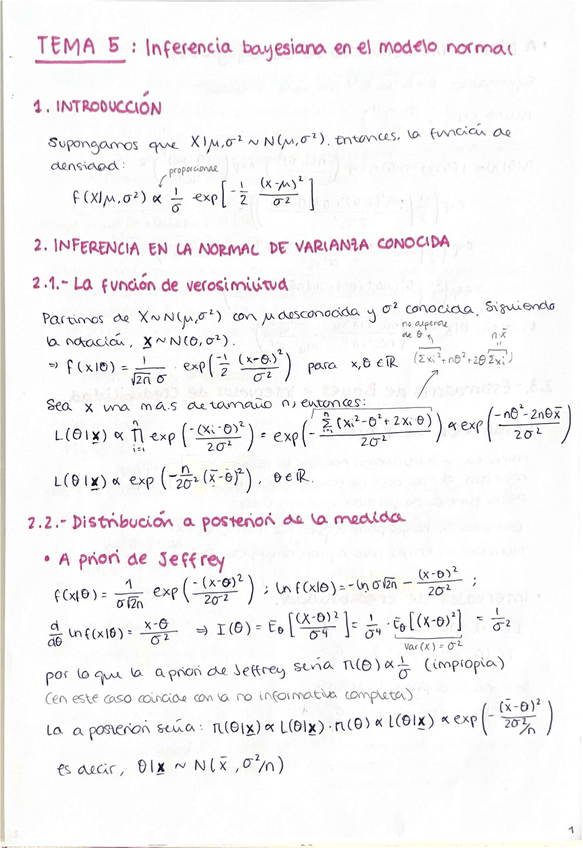 TEMA 5 : Inferencia bayesiana en el modelo normal
1. INTRODUCCIÓN
Supongamos que X|μ,σ² ~ N(μ,σ²). Entonces, la función de
densidad:
proporcional
f(X|μ,σ²) ∝ 1/σ exp[-1/2 (x-μ)²/σ²]
2. INFERENCIA EN LA NORMAL DE VARIANZA CONOCIDA
2.1.- La función de verosimilitud
Partimos de X~N(μ,σ²) con μ desconocida y σ² conocida. Siguiendo
la notación, X ~ N(θ,σ²).
no depende de θ
n·x̄
⇒ f(x|θ) = 1/√2π σ · exp(-1/2 (x-θ)²/σ²) para x,θ ∈ ℝ (Σxi²+nθ²+2θΣxi)
Sea x una m.a.s de tamaño n, entonces:
L(θ|x) ∝ ∏ i=1 n exp(-(xi-θ)²/2σ²) = exp(- Σ i=1 n (xi²-θ²+2xiθ)/2σ²) ∝ exp(-nθ²-2nθx̄/2σ²)
L(θ|x) ∝ exp(-n/2σ² (x̄-θ)²), θ∈ℝ.
2.2.- Distribución a posteriori de la medida
• A priori de Jeffrey
f(x|θ) = 1/σ√2π exp(-(x-θ)²/2σ²) ; ln f(x|θ) = -ln σ√2π - (x-θ)²/2σ² ;
d/dθ ln f(x|θ) = x-θ/σ² ⇒ I(θ) = Eθ[(x-θ)²/σ⁴] = 1/σ⁴ · Eθ[(x-θ)²] = 1/σ²
Var(x) = σ²
por lo que la a priori de Jeffrey sería π(θ) ∝ 1/σ (impropia)
(en este caso coincide con la no informativa completa)
La a posteriori sería: π(θ|x) ∝ L(θ|x)·π(θ) ∝ L(θ|x) ∝ exp(-(x̄-θ)²/2σ²/n)
es decir, θ|x ~ N(x̄, σ²/n)
1